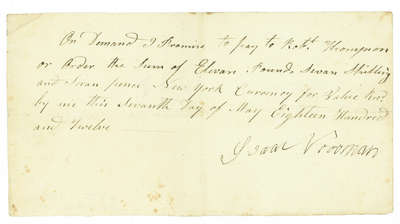 On Demand I Promise to pay to Robt. Thompson
or Order the Sum of Elevan Pounds Sevan Shilling
and Ivan pence New York Currency for Value Recd
by me this Sevanth Day of May Eighteen Hundred
and Twelve
Isaac Vrooman